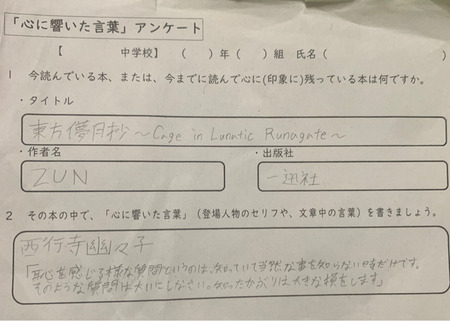 「心に響いた言葉」アンケート
【　　　　　中学校】（　　）年（　　）組　氏名（　　　　　　　　）
1　今読んでいる本、または、今までに読んで心に(印象に)残っている本は何ですか。
・タイトル
東方儚月抄～Cage in Lunatic Runagate～
・作者名　　　　　・出版社
ZUN　　　　　一迅社
2　その本の中で、「心に響いた言葉」（登場人物のセリフや、文章中の言葉）を書きましょう。
西行寺幽々子
「恥を感じる様な質問というのは、知っていて当然な事を知らない時だけです。
そのような質問は大いにしなさい。知ったかぶりは大きな損をします」